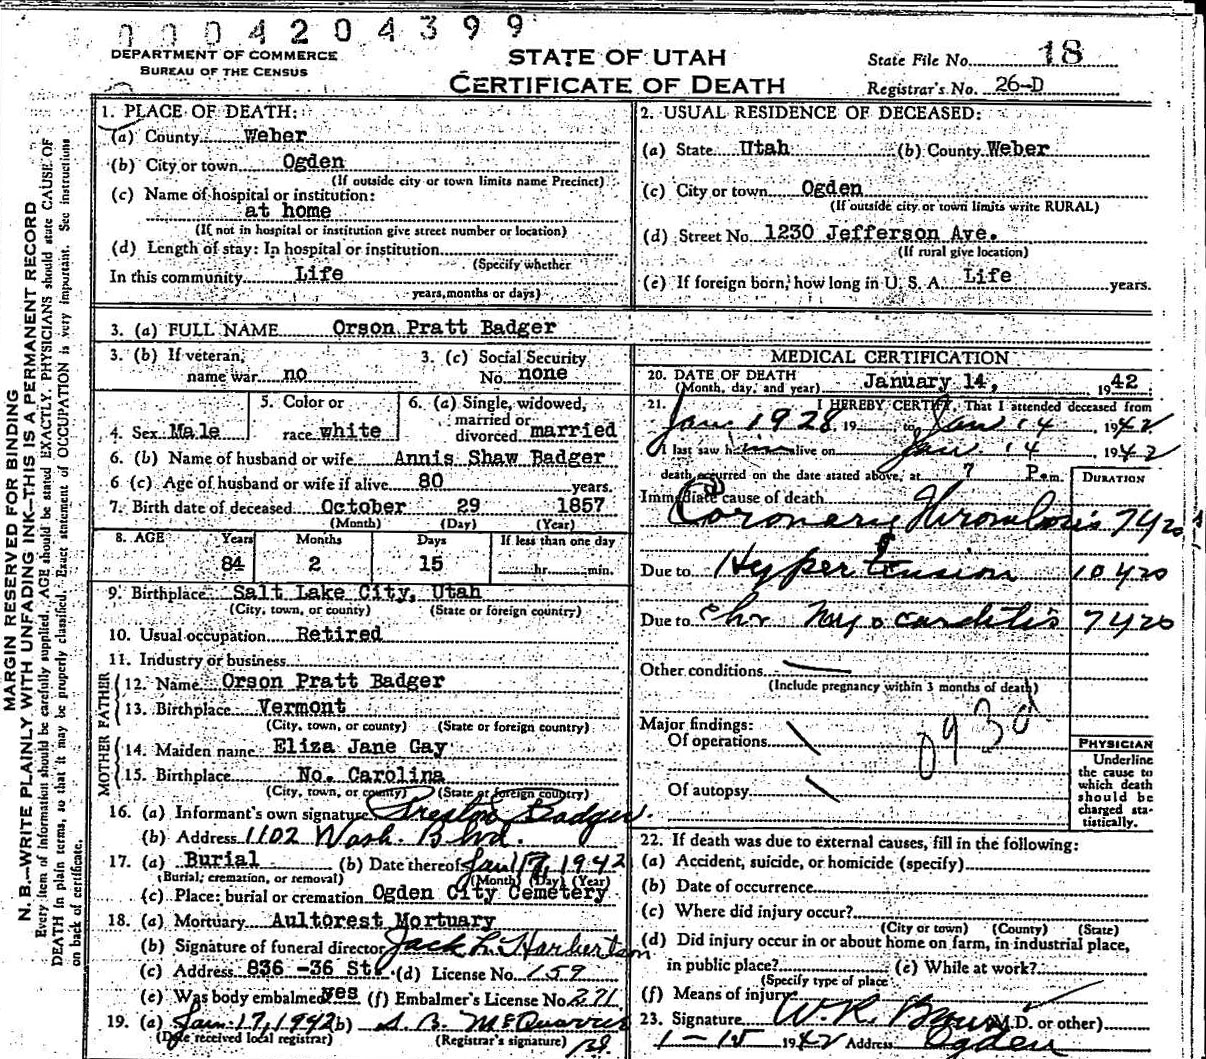 0004204399
DEPARTMENT OF COMMERCE
BUREAU OF THE CENSUS
STATE OF UTAH
CERTIFICATE OF DEATH
State File No. 18
Registrar's No. 26-D
MARGIN RESERVED FOR BINDING
N. B.—WRITE PLAINLY WITH UNFADING INK—THIS IS A PERMANENT RECORD
Every item of information should be carefully supplied. AGE should be stated EXACTLY. PHYSICIANS should state CAUSE OF
DEATH in plain terms, so that it may be properly classified. Exact statement of OCCUPATION is very important. See instructions
on back of certificate.
1. PLACE OF DEATH:
(a) County Weber
(b) City or town Ogden
(If outside city or town limits name Precinct)
(c) Name of hospital or institution:
at home
(If not in hospital or institution give street number or location)
(d) Length of stay: In hospital or institution
(Specify whether
In this community Life
years, months or days)
2. USUAL RESIDENCE OF DECEASED:
(a) State Utah (b) County Weber
(c) City or town Ogden
(If outside city or town limits write RURAL)
(d) Street No. 1230 Jefferson Ave.
(If rural give location)
(e) If foreign born, how long in U. S. A. Life years.
3. (a) FULL NAME Orson Pratt Badger
3. (b) If veteran, name war no
3. (c) Social Security No. none
4. Sex Male
5. Color or race white
6. (a) Single, widowed, married or divorced married
6. (b) Name of husband or wife Annis Shaw Badger
6 (c) Age of husband or wife if alive 80 years.
7. Birth date of deceased October 29 1857
(Month) (Day) (Year)
8. AGE Years Months Days If less than one day
84 2 15 hr. min.
9. Birthplace Salt Lake City, Utah
(City, town, or county) (State or foreign country)
10. Usual occupation Retired
11. Industry or business
FATHER
12. Name Orson Pratt Badger
13. Birthplace Vermont
(City, town, or county) (State or foreign country)
MOTHER
14. Maiden name Eliza Jane Gay
15. Birthplace No. Carolina
(City, town, or county) (State or foreign country)
16. (a) Informant's own signature Preston Badger.
(b) Address 1102 Wash. Blvd.
17. (a) Burial (b) Date thereof Jan 17, 1942
(Burial, cremation, or removal) (Month) (Day) (Year)
(c) Place: burial or cremation Ogden City Cemetery
18. (a) Mortuary Aultorest Mortuary
(b) Signature of funeral director Jack L. Harbertson
(c) Address 836 -36 St. (d) License No. 159
(e) Was body embalmed yes (f) Embalmer's License No. 271
19. (a) Jan. 17, 1942 (b) S. B. McQuarrie
(Date received local registrar) (Registrar's signature)
MEDICAL CERTIFICATION
20. DATE OF DEATH
(Month, day, and year) January 14, 1942
21. I HEREBY CERTIFY, That I attended deceased from
Jan. 1928, 19 to Jan 14, 1942
I last saw him alive on Jan. 14, 1942
death occurred on the date stated above, at 7 P.m.
DURATION
Immediate cause of death
Coronary Thrombosis
Due to Hypertension
Due to chr Myocarditis
Other conditions
(Include pregnancy within 3 months of death)
Major findings:
Of operations
Of autopsy
PHYSICIAN
Underline
the cause to
which death
should be
charged sta-
tistically.
22. If death was due to external causes, fill in the following:
(a) Accident, suicide, or homicide (specify)
(b) Date of occurrence
(c) Where did injury occur?
(City or town) (County) (State)
(d) Did injury occur in or about home on farm, in industrial place,
in public place? (e) While at work?
(Specify type of place
(f) Means of injury
23. Signature W. R. (M.D. or other)
1-15 1942 Address Ogden